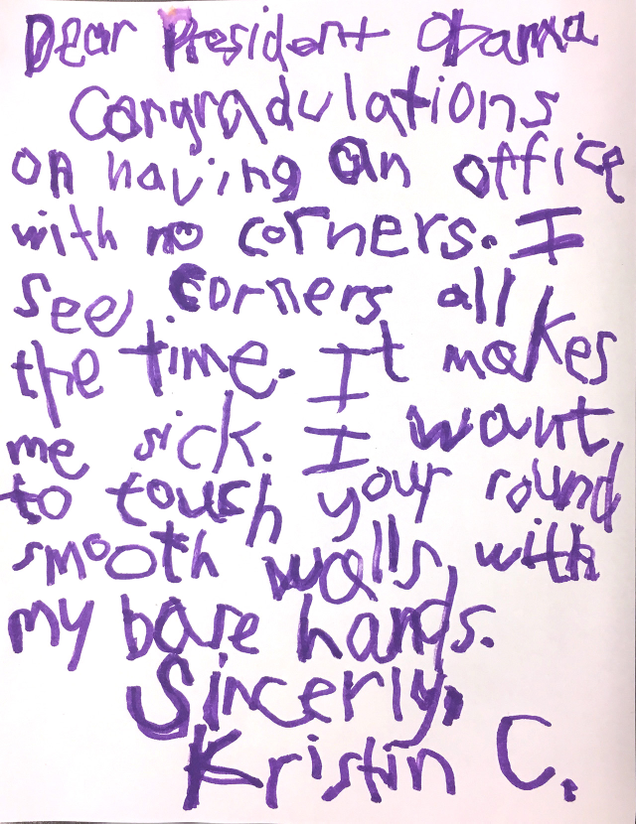 Dear President Obama
Congradulations
on having an office
with no corners. I
see corners all
the time. It makes
me sick. I want
to touch your round
smooth walls with
my bare hands.
Sincerly,
Kristin C.